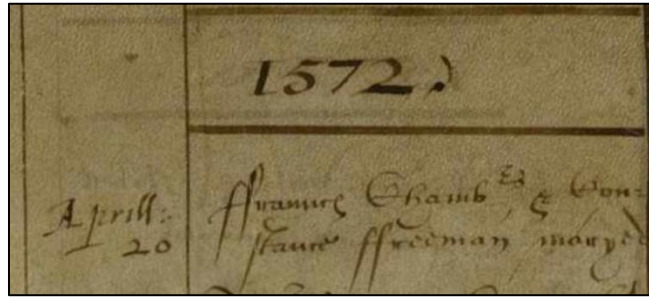 1572
Aprill: ffrancis Chamb & Con=
20 stance ffreeman maryed